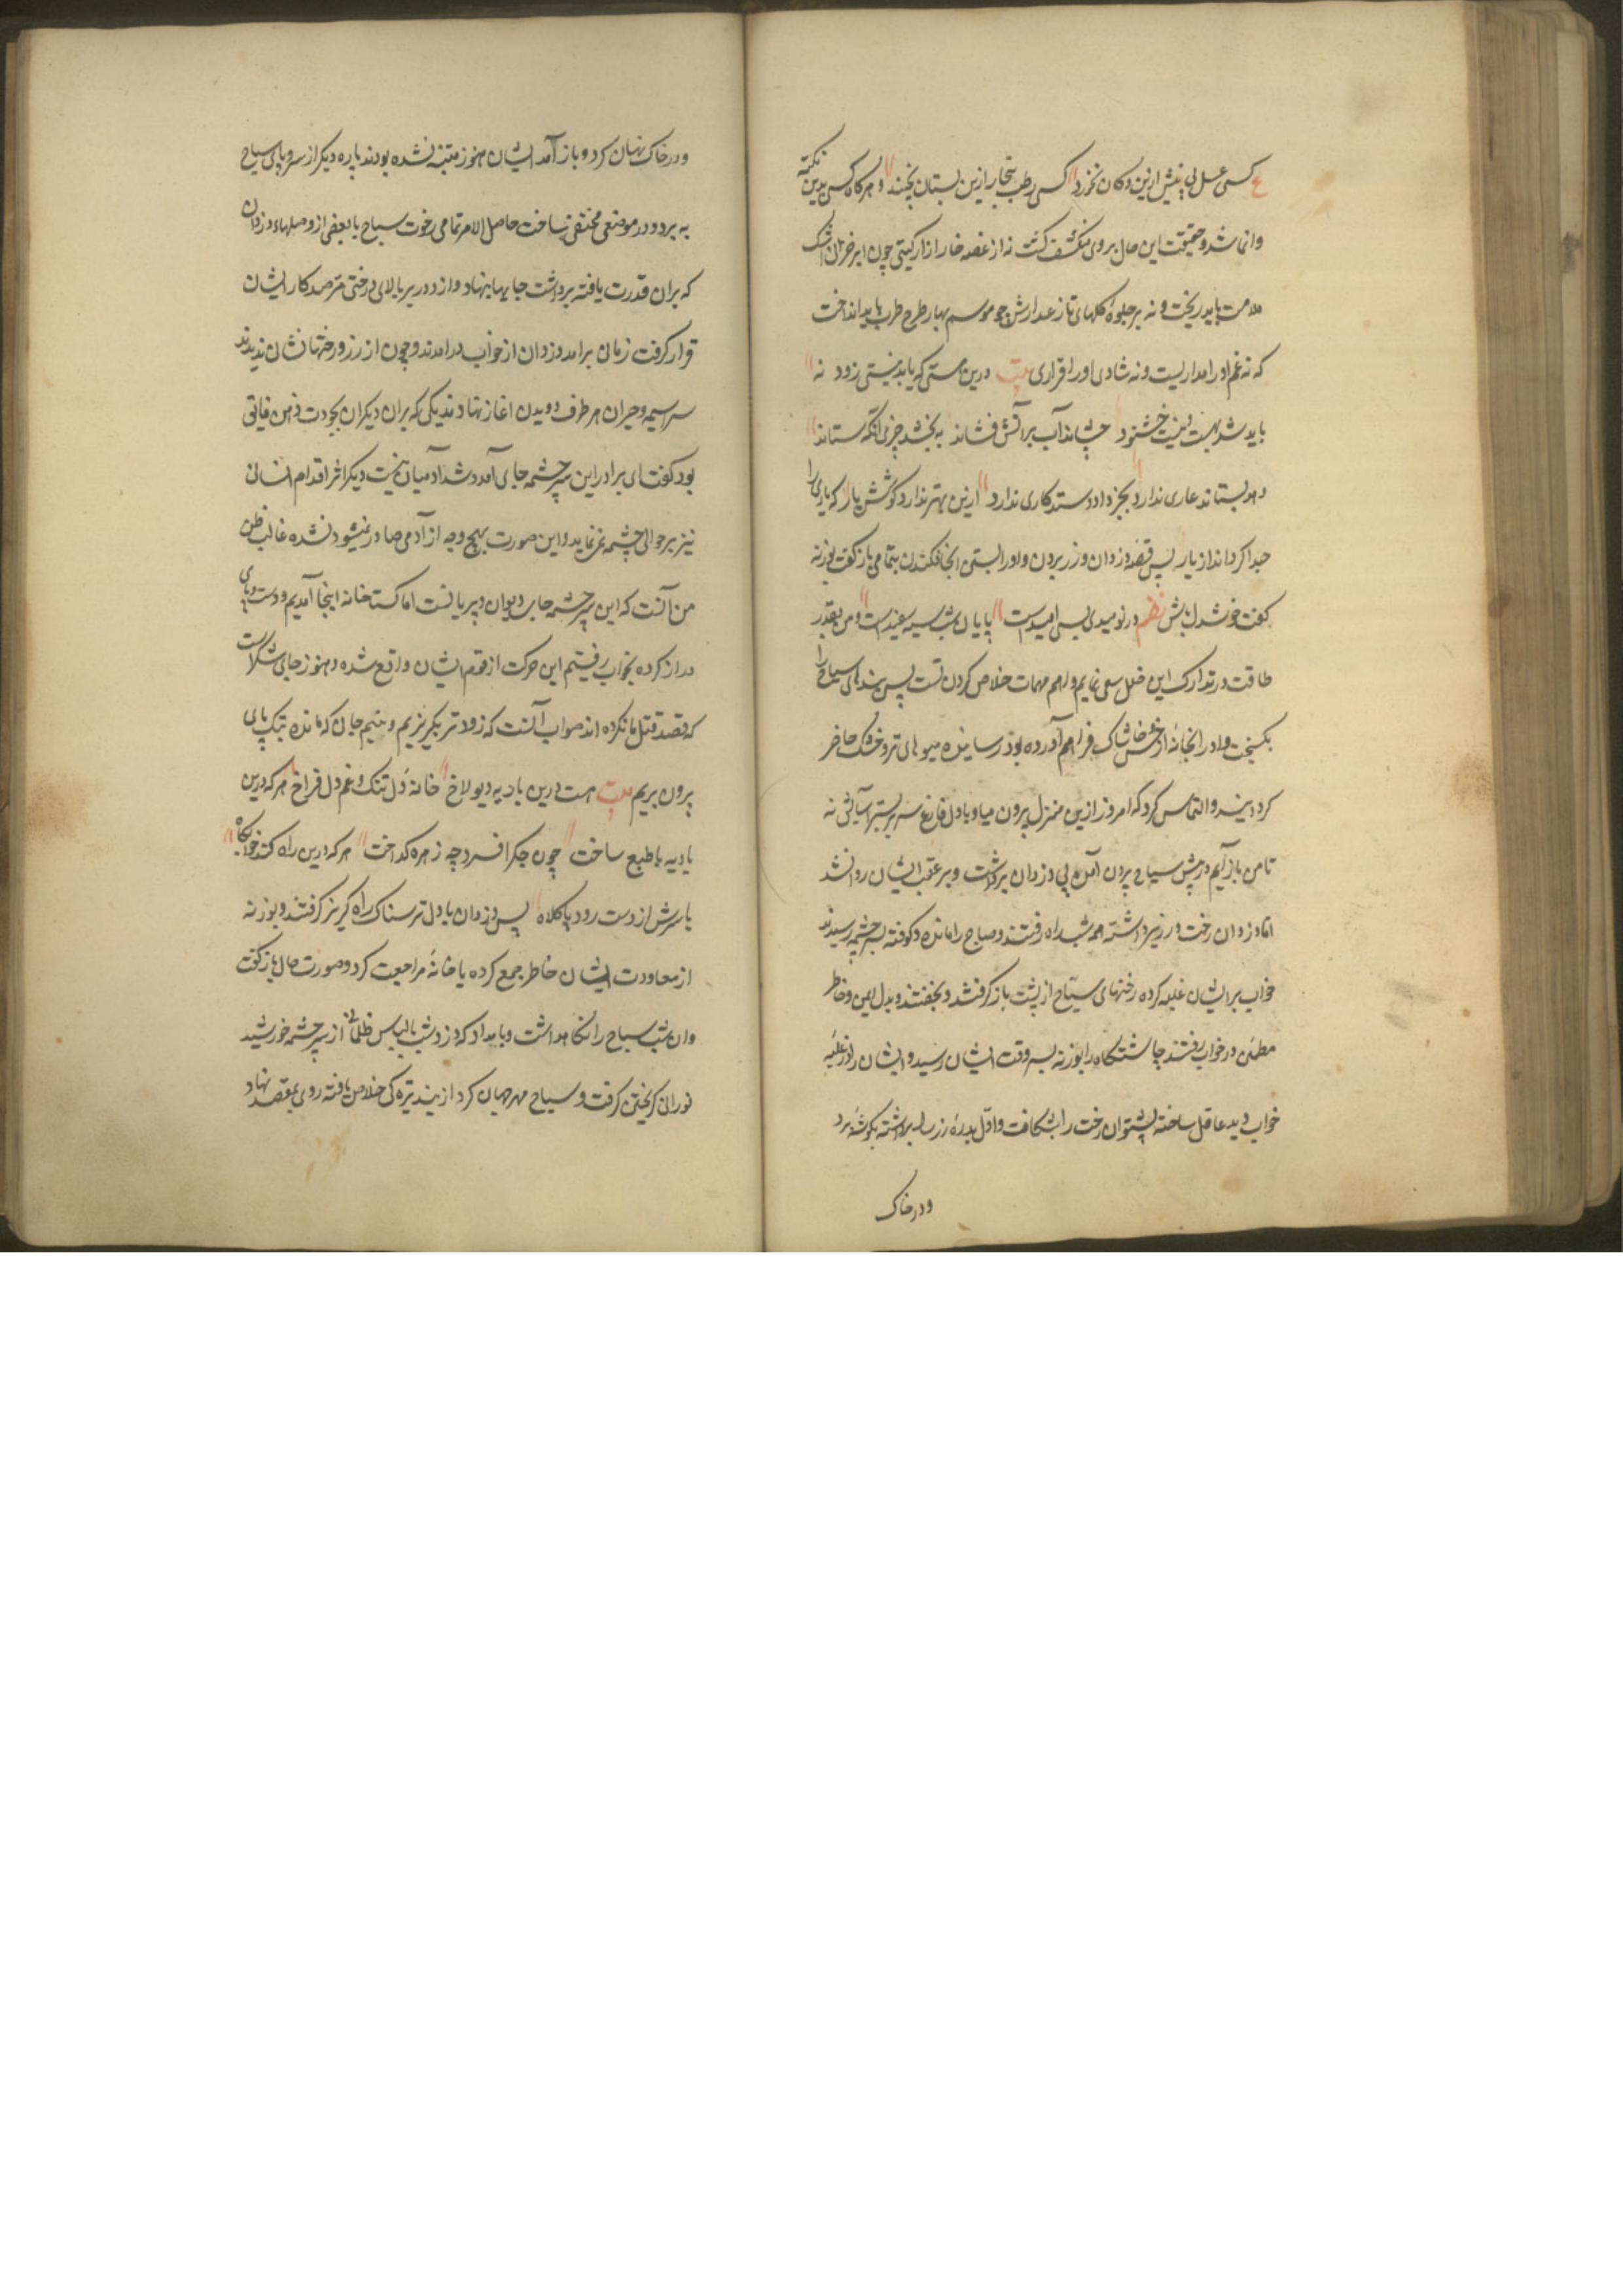 ع کسی عسل بی نیش ازین دکان نخورد کسی رطب بیخار ازین بستان نچیند و هر کاه کسی بدین نکته
دانا شد و حقیقت این حال بر وی منکشف کشت نه از غصه خار ازار کیتی چون ابر خزان اشک
ملامت باید ریخت و نه بر جلوه کلهای تازه عذارش چو موسم بهار طرح طرب باید انداخت
که نه غم اورا مداریست و نه شادی اورا قراری بیت درین هستی که یابد نیستی زود نه
باید شد بهست و نیست خشنود چشاند آب بر آتش فشاند به بخشد چیزی انکه ستاند
دهد بستاند عاری ندارد بجز داد و ستد کاری ندارد ازین بهتر ندارد کوشش یار که یاری را
جدا کرداند از یار پس قصه دزدان و زر بردن و اورا بستن انجا فکندن بتمامی باز کفت بوزنه
کفت خوشدل باش نظم در نومیدی بسی امیدست پایان شب سیه سفیدست و من بقدر
طاقت در تدارک این خلل سعی نمایم و اهم مهمات خلاص کردن تست پس بندهای سیاح را
بکسیخت و اورا بخانه از خس و خاشاک فراهم آورده بود رسانیده میوهای تر و خشک حاضر
کردانید و التماس کرد که امروز ازین منزل بیرون میا و با دل فارغ سر بر بستر آسایش نه
تا من باز آیم و از پیش سیاح بیرون آمده پی دزدان برداشت و بر عقب ایشان روان شد
اما دزدان رخت و زر برداشته همه شب راه رفتند و صباح را مانده و کوفته بسر چشمه رسیدند
خواب بر ایشان غلبه کرده رختهای سیاح از پشت باز کرفتند و بخفتند و بدل امن و خاطر
مطمئن در خواب رفتند چاشتکاه را بوزنه بسر وقت ایشان رسید و ایشان را از غلبه
خواب دید غافل ساخته پشتوان رخت را بشکافت و اول بدره زر را برداشته بکوشه برد
و در خاک
و در خاک نهان کرد و باز آمد ایشان هنوز متنبه نشده بودند پاره دیکر از سر و پای سیاح
به برد و در موضعی مختفی ساخت حاصل الامر تمامی رخوت سیاح با بعضی از وصلهاء دزدان
که بران قدرت یافته برداشت جایها بنهاد و از دور بر بالای درختی مترصد کار ایشان
قرار کرفت زمان برامد و دزدان از خواب درامدند و چون از زر و رختها نشان ندیدند
سراسیمه و حیران هر طرف دویدن اغاز نهادند یکی که بران دیکران بجودت ذهن فایق
بود کفت ای برادر این سر چشمه جای آمد و شد آدمیان نیست دیکر اثر اقدام انسانی
نیز بر حوالی چشمه نمی نماید و این صورت بهیچ وجه از آدمی صادر نمیشود نشده غالب ظن
من آنست که این سر چشمه جای دیوان و پریانست اما کستاخانه اینجا آمدیم و دست و پای
دراز کرده بخواب رفتیم این حرکت از قوم ایشان واقع شده و هنوز جای شکر است
که قصد قتل ما نکرده اند صواب آنست که زودتر بکریزیم و نیم جان که مانده بتک پای
بیرون بریم بیت هست درین بادیه دیولاخ خانه دل تنک و غم دل فراخ هر که درین
بادیه با طبع ساخت چون جکر افسرد چه زهره کداخت هر که درین راه کند خوابکاه
یا سرش از دست رود یا کلاه پس دزدان با دل ترسناک راه کریز کرفتند و بوزنه
از معاودت ایشان خاطر جمع کرده با خانه مراجعت کرد و صورت حال باز کفت
و ان شب سیاح را نکاهداشت و بامداد که دزد شب بالباس ظلمانی از سر چشمه خورشید
نورانی کریختن کرفت و سیاح مهر جهان کرد از بند تیرکی خلاص یافته روی بمقصد نهاد